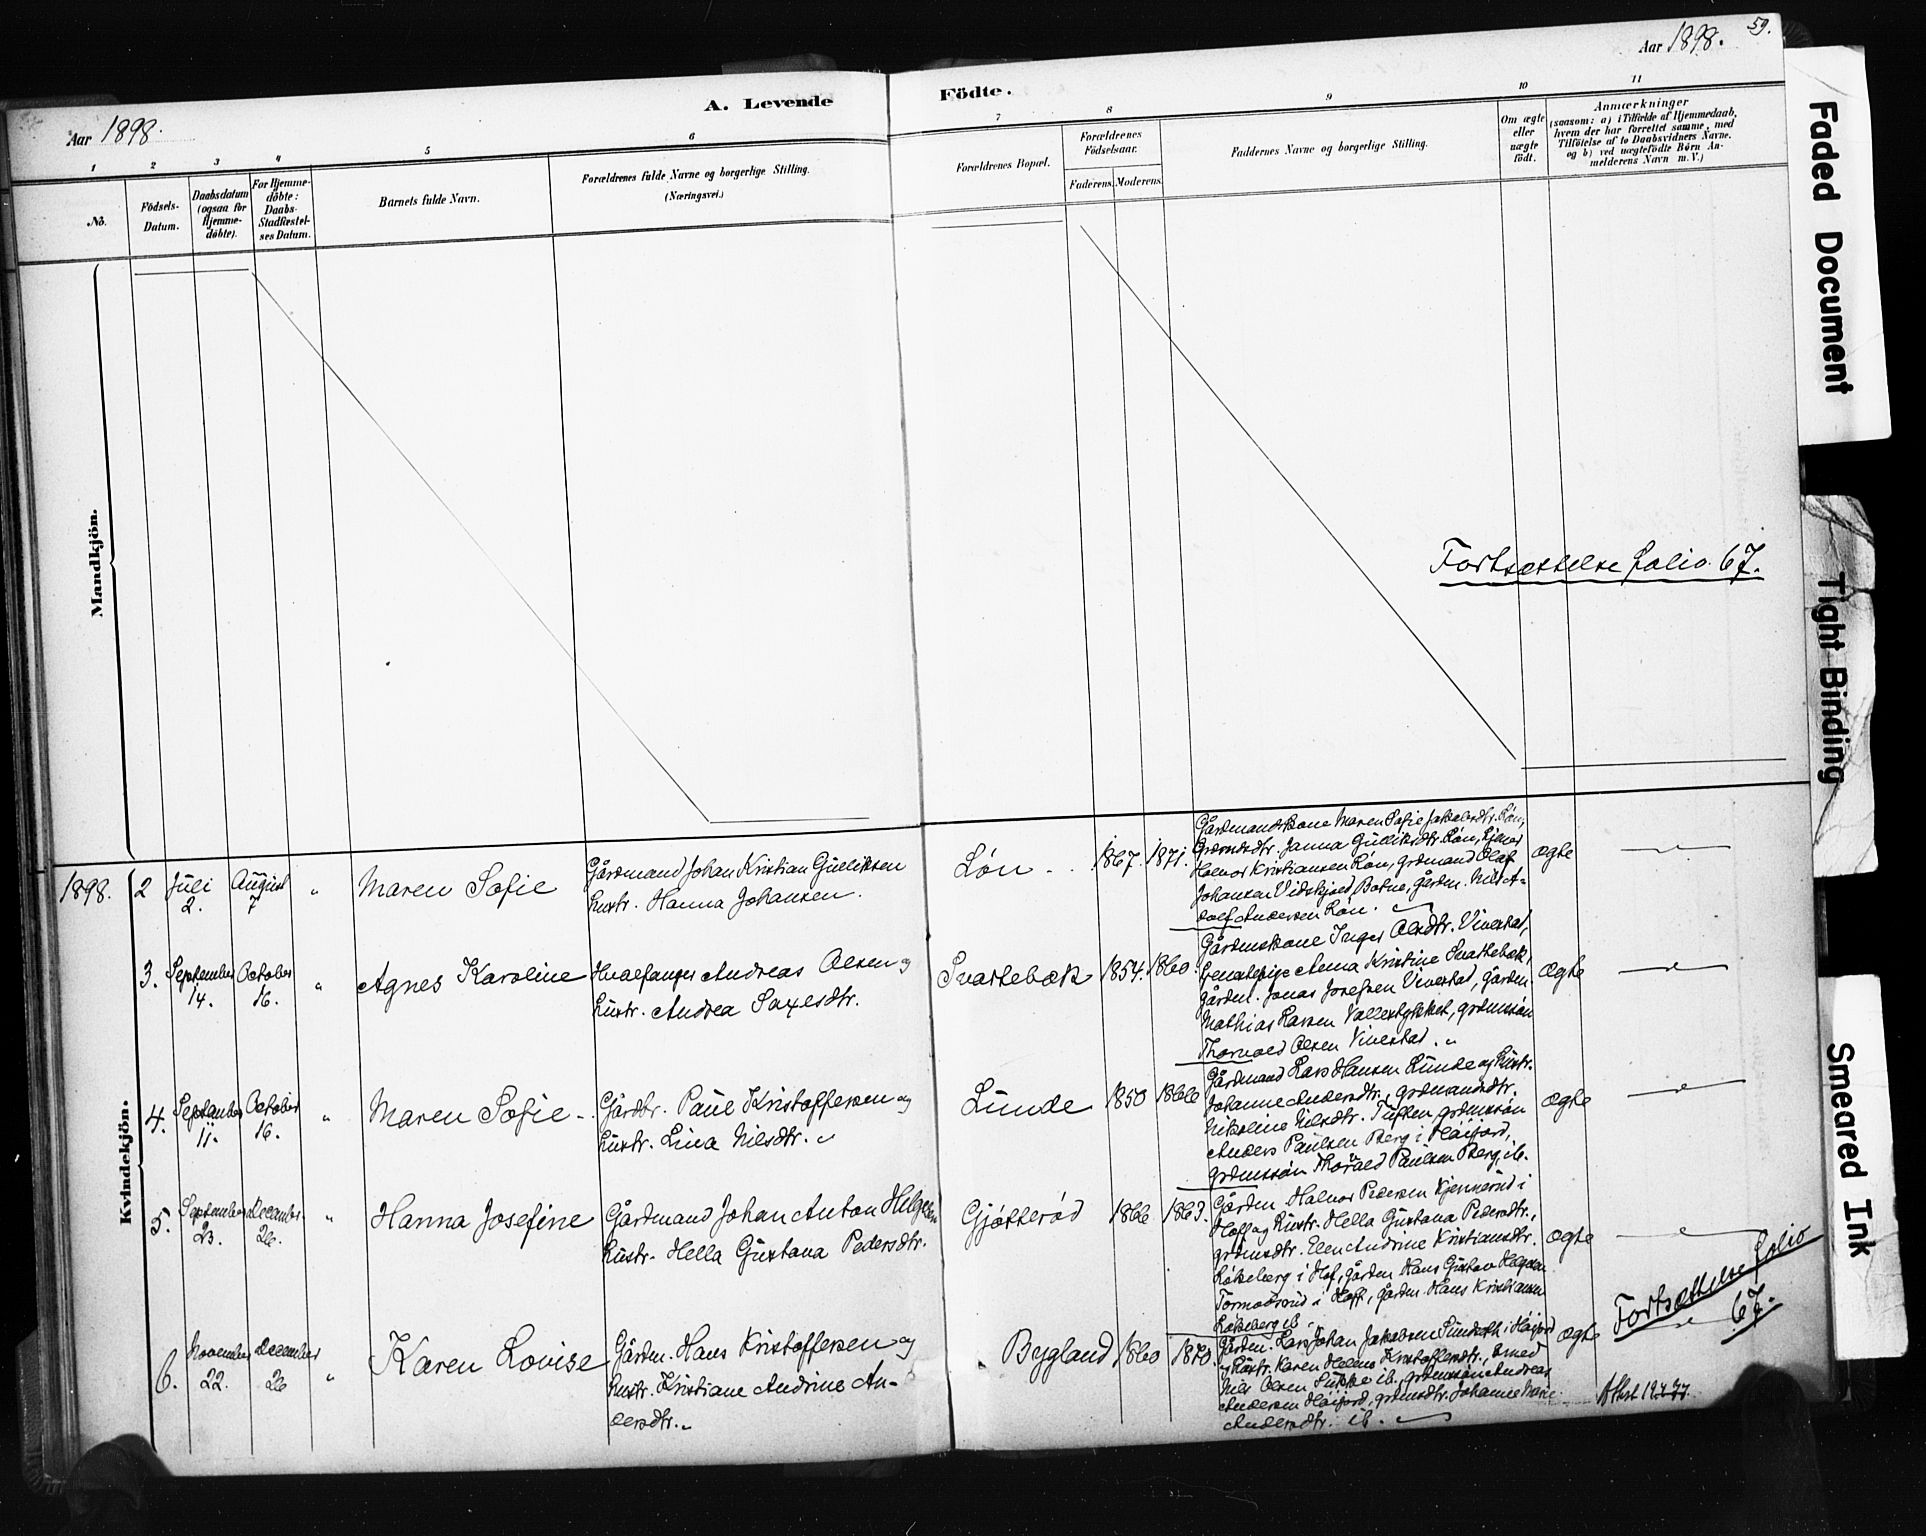 59.
Aar 1898.
Aar 1898.
A. Levende
Födte.
1
2
3
4
5
6
7
8
9
10
11
No.
Födsels-
Datum.
Daabsdatum
(ogsaa for
Hjemme-
döbte).
For Hjemme-
döbte:
Daabs-
Stadfæstel-
ses Datum.
Barnets fulde Navn.
Forældrenes fulde Navne og borgerlige Stilling.
(Næringsvei.)
Forældrenes Bopæl.
Forældrenes
Födselsaar.
Faderens.
Moderens.
Faddernes Navne og borgerlige Stilling.
Om ægte
eller
uægte
födt.
Anmærkninger
(saasom: a) i Tilfælde af Hjemmedaab,
hvem der har forrettet samme, med
Tilföielse af to Daabsvidners Navne.
og b) ved uægtefödte Börn An-
melderens Navn m. V.)
Mandkjön.
Fortsættelse folio 67.
Kvindekjön.
1898.
2
Juli
2.
August
7
"
Maren Sofie
Gårdmand Johan Kristian Gulliksen
hustr. Hanna Johansen.
Løn
1867.
1871.
Gårdmandskone Maren Sofie Jakobsdtr. Løn,
Grdmdsdtr. Janna Gulliksdtr. Løn,
Halvor Kristiansen Løn, grdmand Olaf
Johansen Vidskjold, Botne, gårdm. Nils A-
dolf Andersen Løn.
ægte
3.
September
14.
October
16.
"
Agnes Karoline
Hvalfanger Andreas Olsen og
hustr. Andrea Saxesdtr.
Svartebæk
1854.
1860.
Gårdmskone Inger Olsdtr. Vivestad,
Anna Kristine Svartebæk,
gårdm. Jonas Josefsen Vivestad, gårdm.
Mathias Larsen Vallestykket, grdmssøn
Thorvald Olsen Vivestad.
ægte
4.
September
11.
October
16.
"
Maren Sofie
Gårdbr. Paul Kristoffersen og
hustr. Lina Nilsdtr.
Lunde
1850
1866
Gårdmand Lars Hansen Lunde og hustr.
Johanne Andersdtr., grdmandsdtr.
Nikoline Nilsdtr. Tuften, grdmssøn
Anders Paulsen Berg i Håifjord,
grdmssøn Thorvald Paulsen Berg, ib.
ægte
5.
September
23.
December
26.
"
Hanna Josefine
Gårdmand Johan Anton Helgesen
hustr. Hella Gustava Pedersdtr.
Gjøtterød
1866
1863.
Gårdm. Halvor Pedersen Kjennerud i
Hoff og hustr. Hella Gustava Pedersdtr.,
grdmsdtr. Elen Andrine Kristiansdtr.
Løkeberg i Hof, gårdm. Hans Gustav Helgesen
Tormodsrud i Hoff, gårdm. Hans Kristiansen
Løkeberg ib.
ægte
Fortsættelse folio
67.
6.
November
22.
December
26
"
Karen Lovise
Gårdm. Hans Kristoffersen og
hustr. Kristiane Andrine An-
dersdtr.
Bygland
1860
1870.
Gårdm. Lars Johan Jakobsen Sundseth i Håifjord
og hustr. Karen Helene Kristoffersdtr., smed
Nils Olsen ib., grdmssøn Andreas
Andersen Håifjord, grdmsdtr. Johanne Marie
Andersdtr. ib.
ægte
Attest
Faded Document
Tight Binding
Smeared Ink